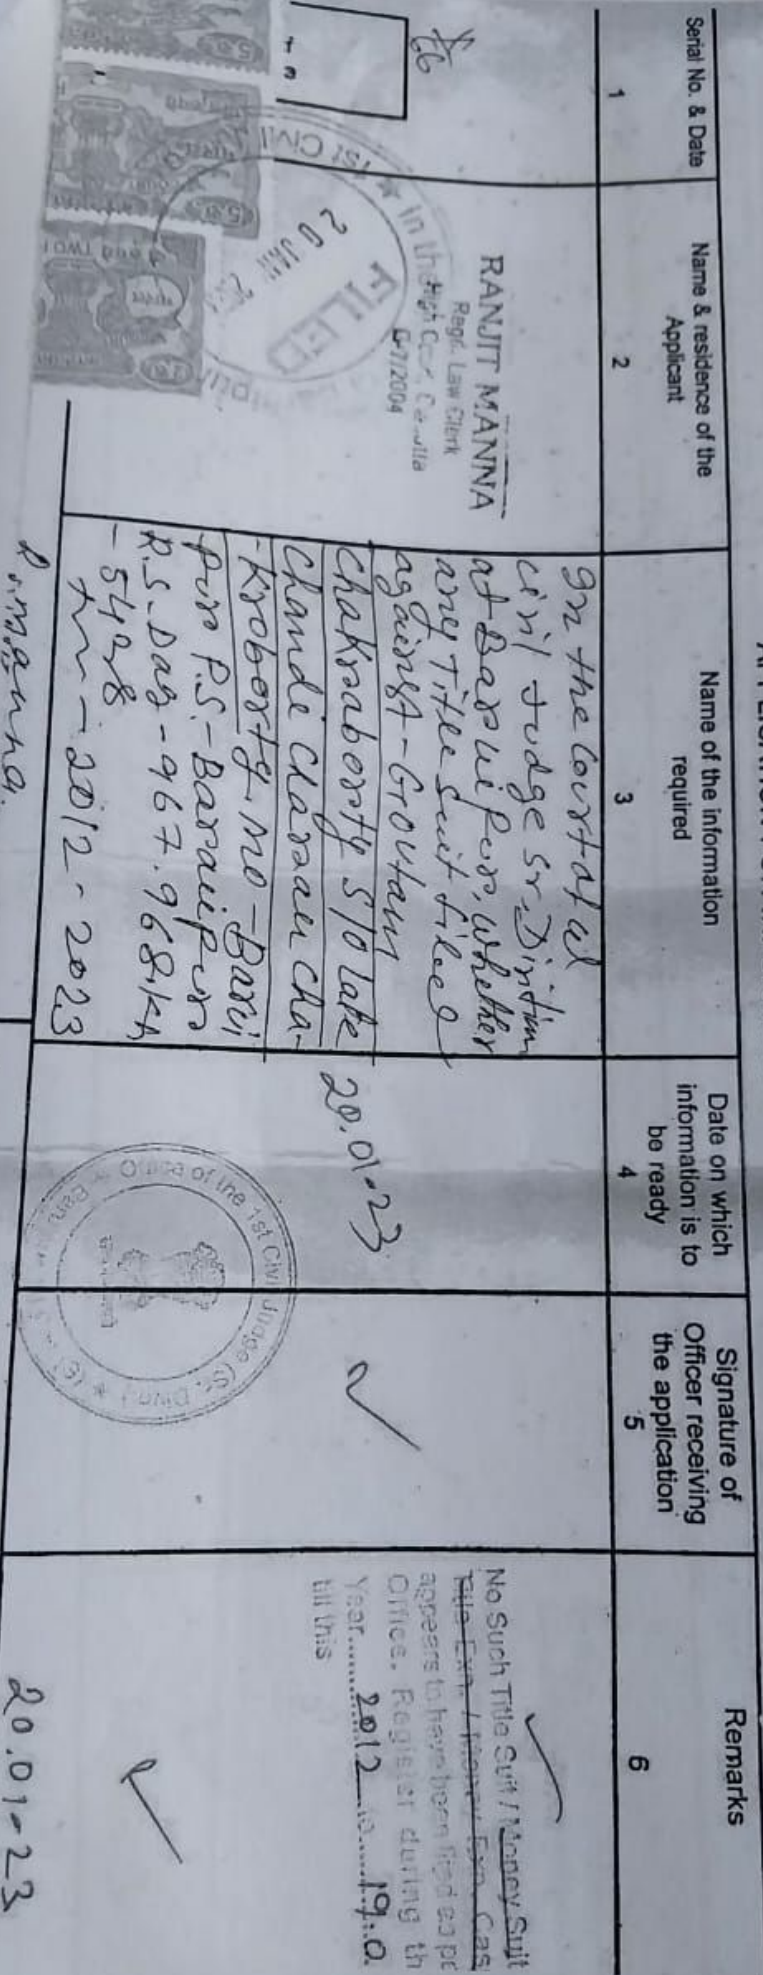 Serial No. & Date
1
Name & residence of the
Applicant
2
Name of the information
required
3
Date on which
information is to
be ready
4
Signature of
Officer receiving
the application
5
Remarks
6
RANJIT MANNA
Regd. Law Clerk
In the High Court, Calcutta
2004
1st CIVIL
FILED
20 JAN
In the Court of Ld
Civil Judge Sr. Divtim
at Baruipur, whether
any Title Suit filed
against - Goutam
Chakraborty S/O late
Chandi Charan Cha-
-kroborty. MO - Barui
pur P.S. - Baruipur
R.S. Dag - 967. 968. Kh
- 5428
2012 - 2023
R. Manna.
20.01.23
Office of the 1st Civil Judge (Sr. Divn)
No Such Title Suit / Money Suit
Title Exn. / Money Exn. Cas
appears to have been filed as pe
Office. Register during th
Year........2012 to.......19.0.
till this
20.01-23